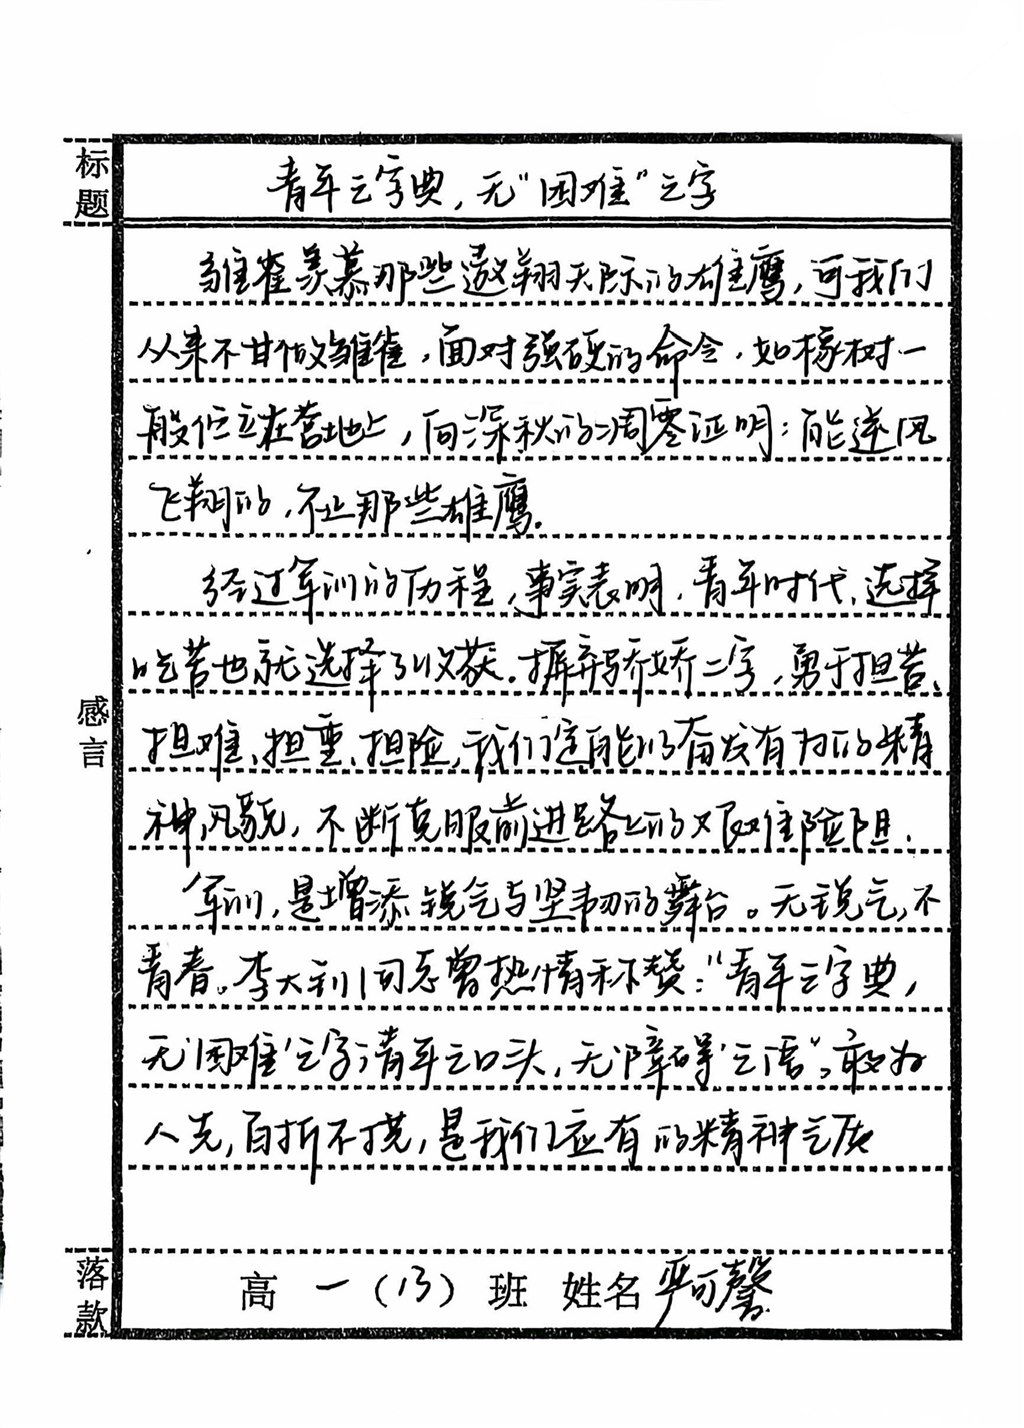 标题
青年之字典，无“困难”之字
雏雀羡慕那些遨翔天际的雄鹰，可我们
从来不甘做雏雀，面对强硬的命令，如橡树一
般伫立在营地上，向深秋的凋零证明：能逆风
飞翔的，不止那些雄鹰。
经过军训的历程，事实表明，青年时代，选择
吃苦也就选择了收获。摒弃骄娇二字，勇于担苦、
担难、担重、担险，我们定能以奋发有为的精
神风貌，不断克服前进路上的艰难险阻.
感言
军训，是增添锐气与坚韧的舞台。无锐气，不
青春。李大钊同志曾热情称赞：“青年之字典，
无‘困难’之字；青年之口头，无‘障碍’之语”，敢为
人先，百折不挠，是我们应有的精神气质
落款
高一（13）班 姓名 严可馨